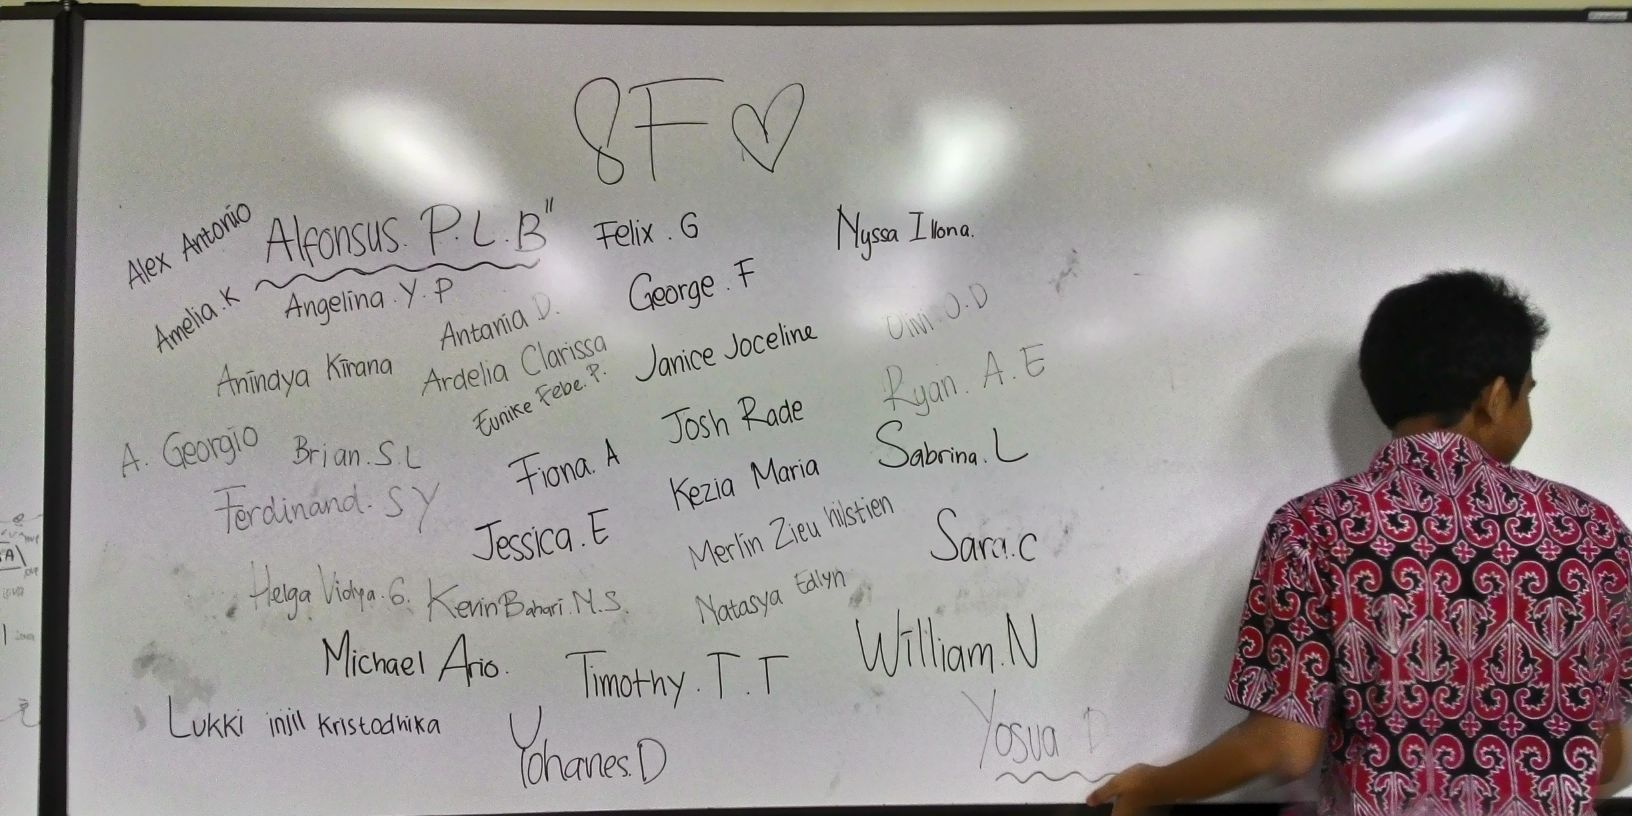 8F♡
Alex Antonio
Alfonsus. P.L.B"
Felix. G
Nyssa Illona.
Amelia. K
Angelina. Y. P
George. F
Antania D.
Olivi. O. D
Anindya Kirana
Ardelia Clarissa
Janice Joceline
Eunike Febe. P.
Ryan. A. E
A. Georgio
Brian. S. L
Josh Rade
Fiona. A
Sabrina. L
Ferdinand. SY
Kezia Maria
Jessica. E
Merlin Zieu hilstien
Sara. C
Helga Vidya. G.
Kevin Bahari. M. S.
Natasya Edlyn
Michael Ario.
Timothy. T. T
William. N
Lukki injil Kristodhika
Yohanes. D
Yosua D